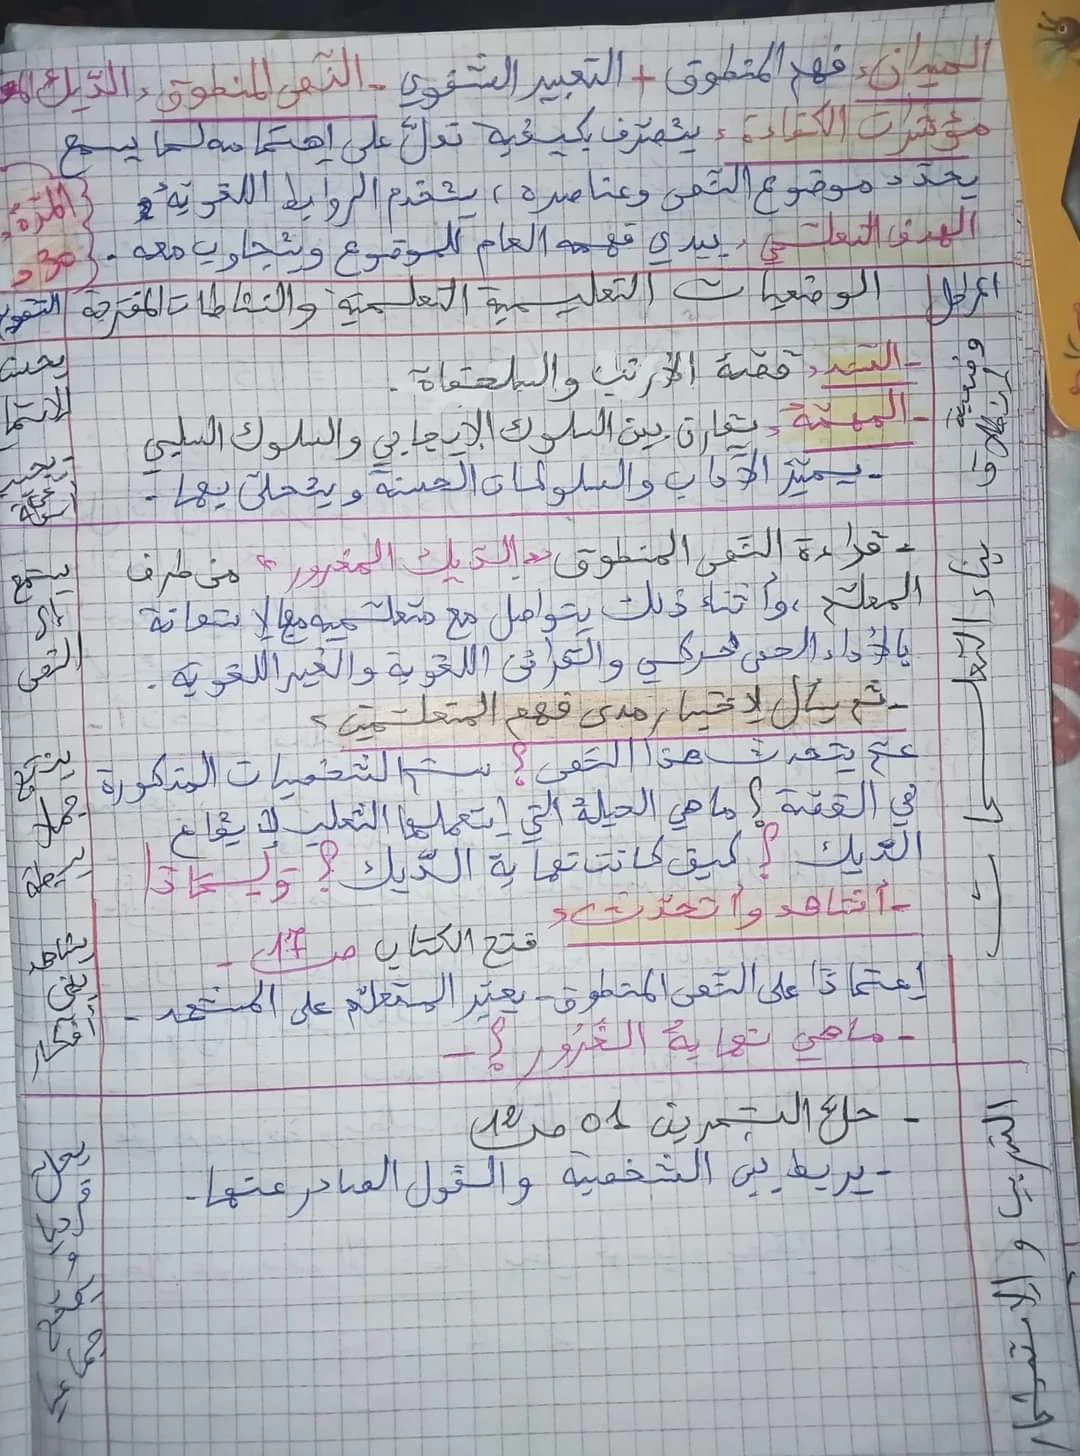 الميدان: فهم المنطوق + التعبير الشفوي - النص المنطوق: الديك
مؤشرات الكفاءة: يتصرف بكيفية تدل على إهتمامه لما يسمع
يحدد موضوع النص وعناصره، يستخدم الروابط اللغوية
الهدف التعلمي: يبدي فهمه العام للموضوع ويتجاوب معه.
المدة:
30 د
المراحل
الوضعيات التعليمية التعلمية والنشاطات المقترحة
التقويم
وضعية الانطلاق
- السند: قصة الأرنب والسلحفاة.
- المهمة: يقارن بين السلوك الإيجابي والسلوك السلبي
- يميز الآداب والسلوكات الحسنة ويتحلى بها.
يجيب
عن
أسئلة
بناء التعلمات
- قراءة النص المنطوق "الديك المغرور" من طرف
المعلم، وأثناء ذلك يتواصل مع متعلميه مع الإستعانة
بالأداء الحس حركي والقرائن اللغوية والغير اللغوية.
- ثم يسأل لإختبار مدى فهم المتعلمين:
عم يتحدث هذا النص؟ سم الشخصيات المذكورة
في القصة؟ ماهي الحيلة التي إستعملها الثعلب لإيقاع
الديك؟ كيف كانت نهاية الديك؟ ولماذا؟
- أشاهد وأتحدث:
فتح الكتاب ص 17 -
إعتمادا على النص المنطوق - يعبر المتعلم على المشهد -
- ماهي نهاية الغرور؟ -
يستمع
إلى
النص
ينتج
جملا
بسيطة
يشاهد
أفكار
التدريب والاستثمار
- حل التمرين 01 ص 12
- يربط بين الشخصية والقول الصادر عنها -
يحل
فرديا
و